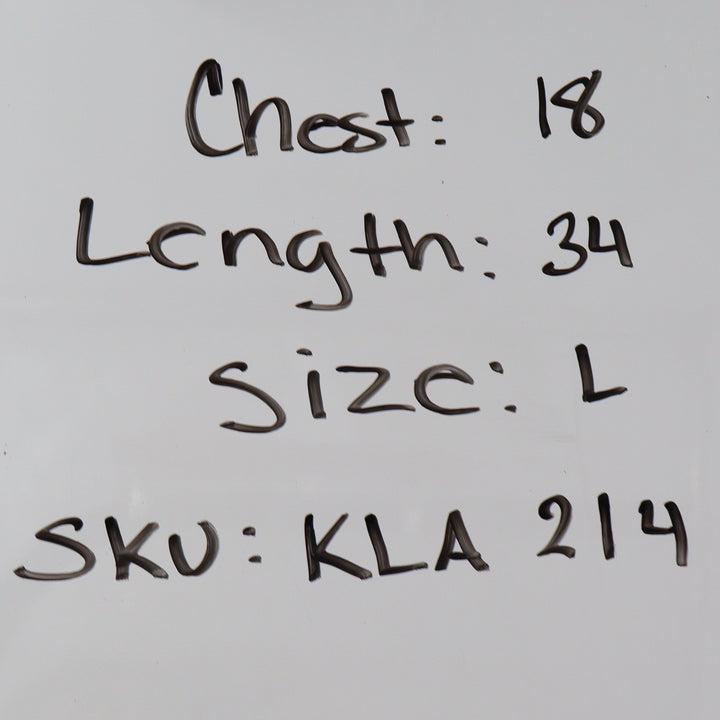 Chest: 18
Length: 34
Size: L
SKU: KLA 214